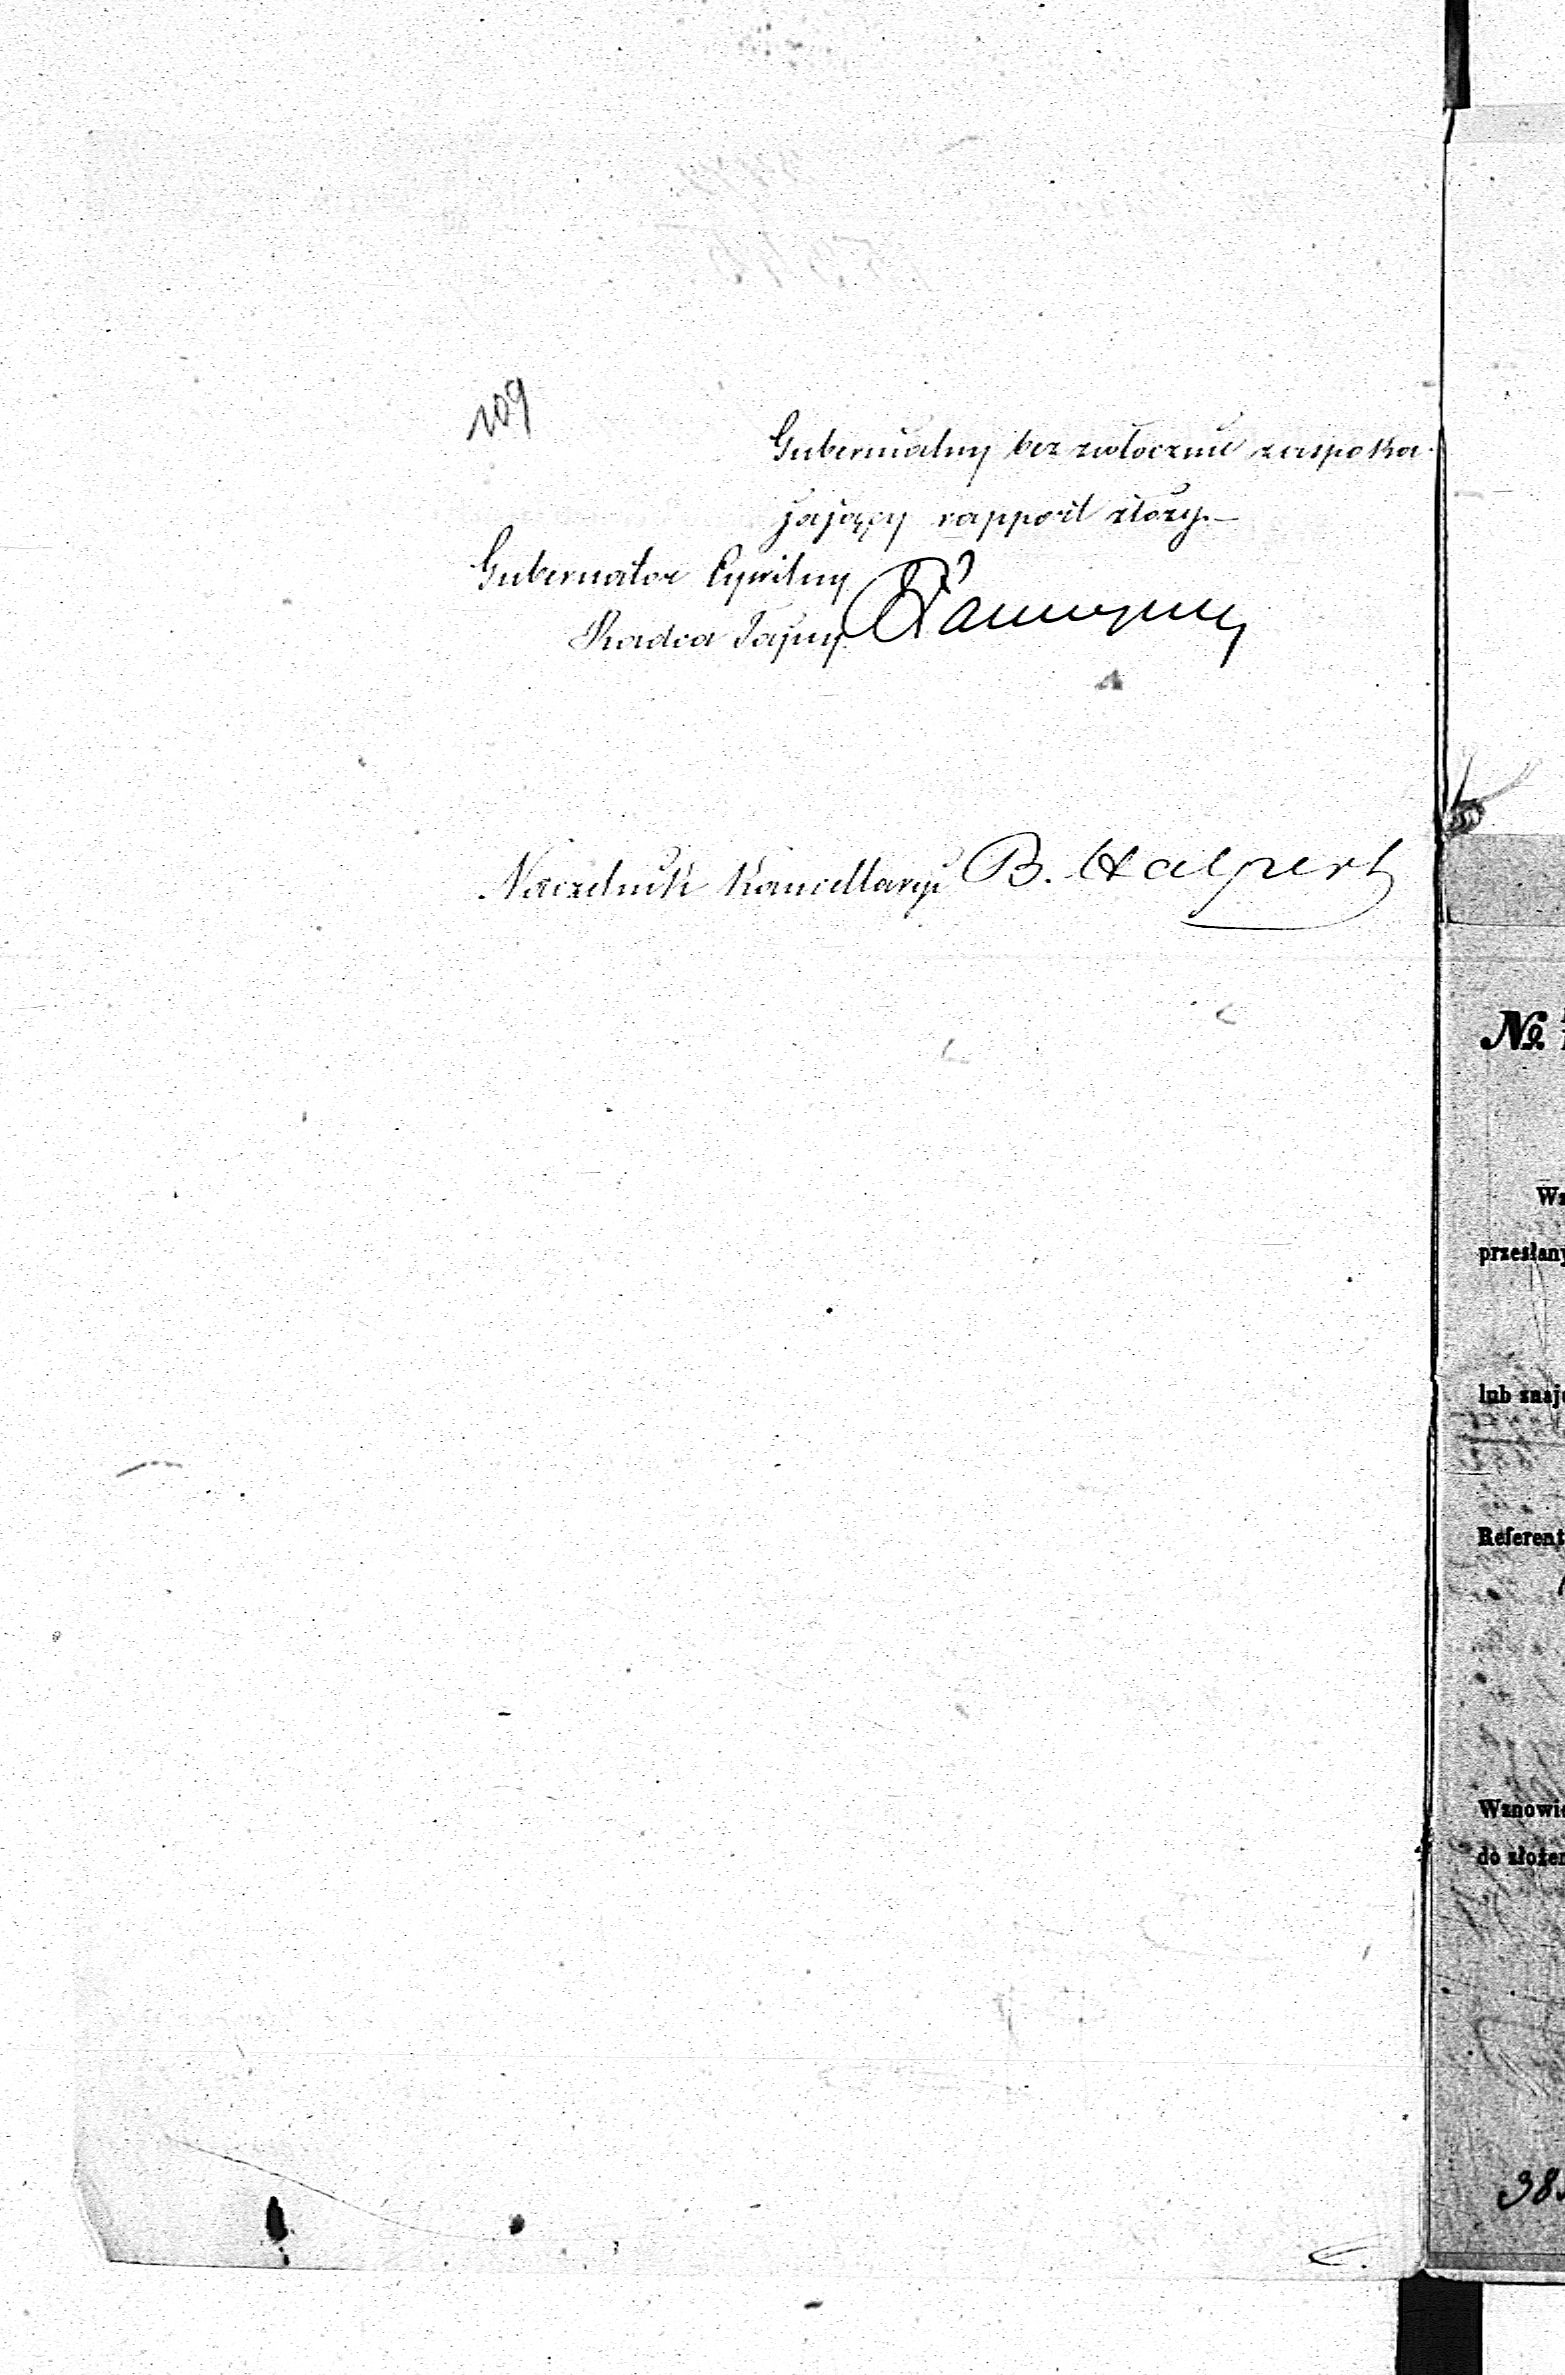 109
Gubernialny bezzwłocznie zaspoka-
jający rapport złoży.—
Gubernator Cywilny
Radca Tajny
Naczelnik Kancellaryi B. Halpert
№
przesłany
lub znaj
Referent
Wznowi
do złożen
38